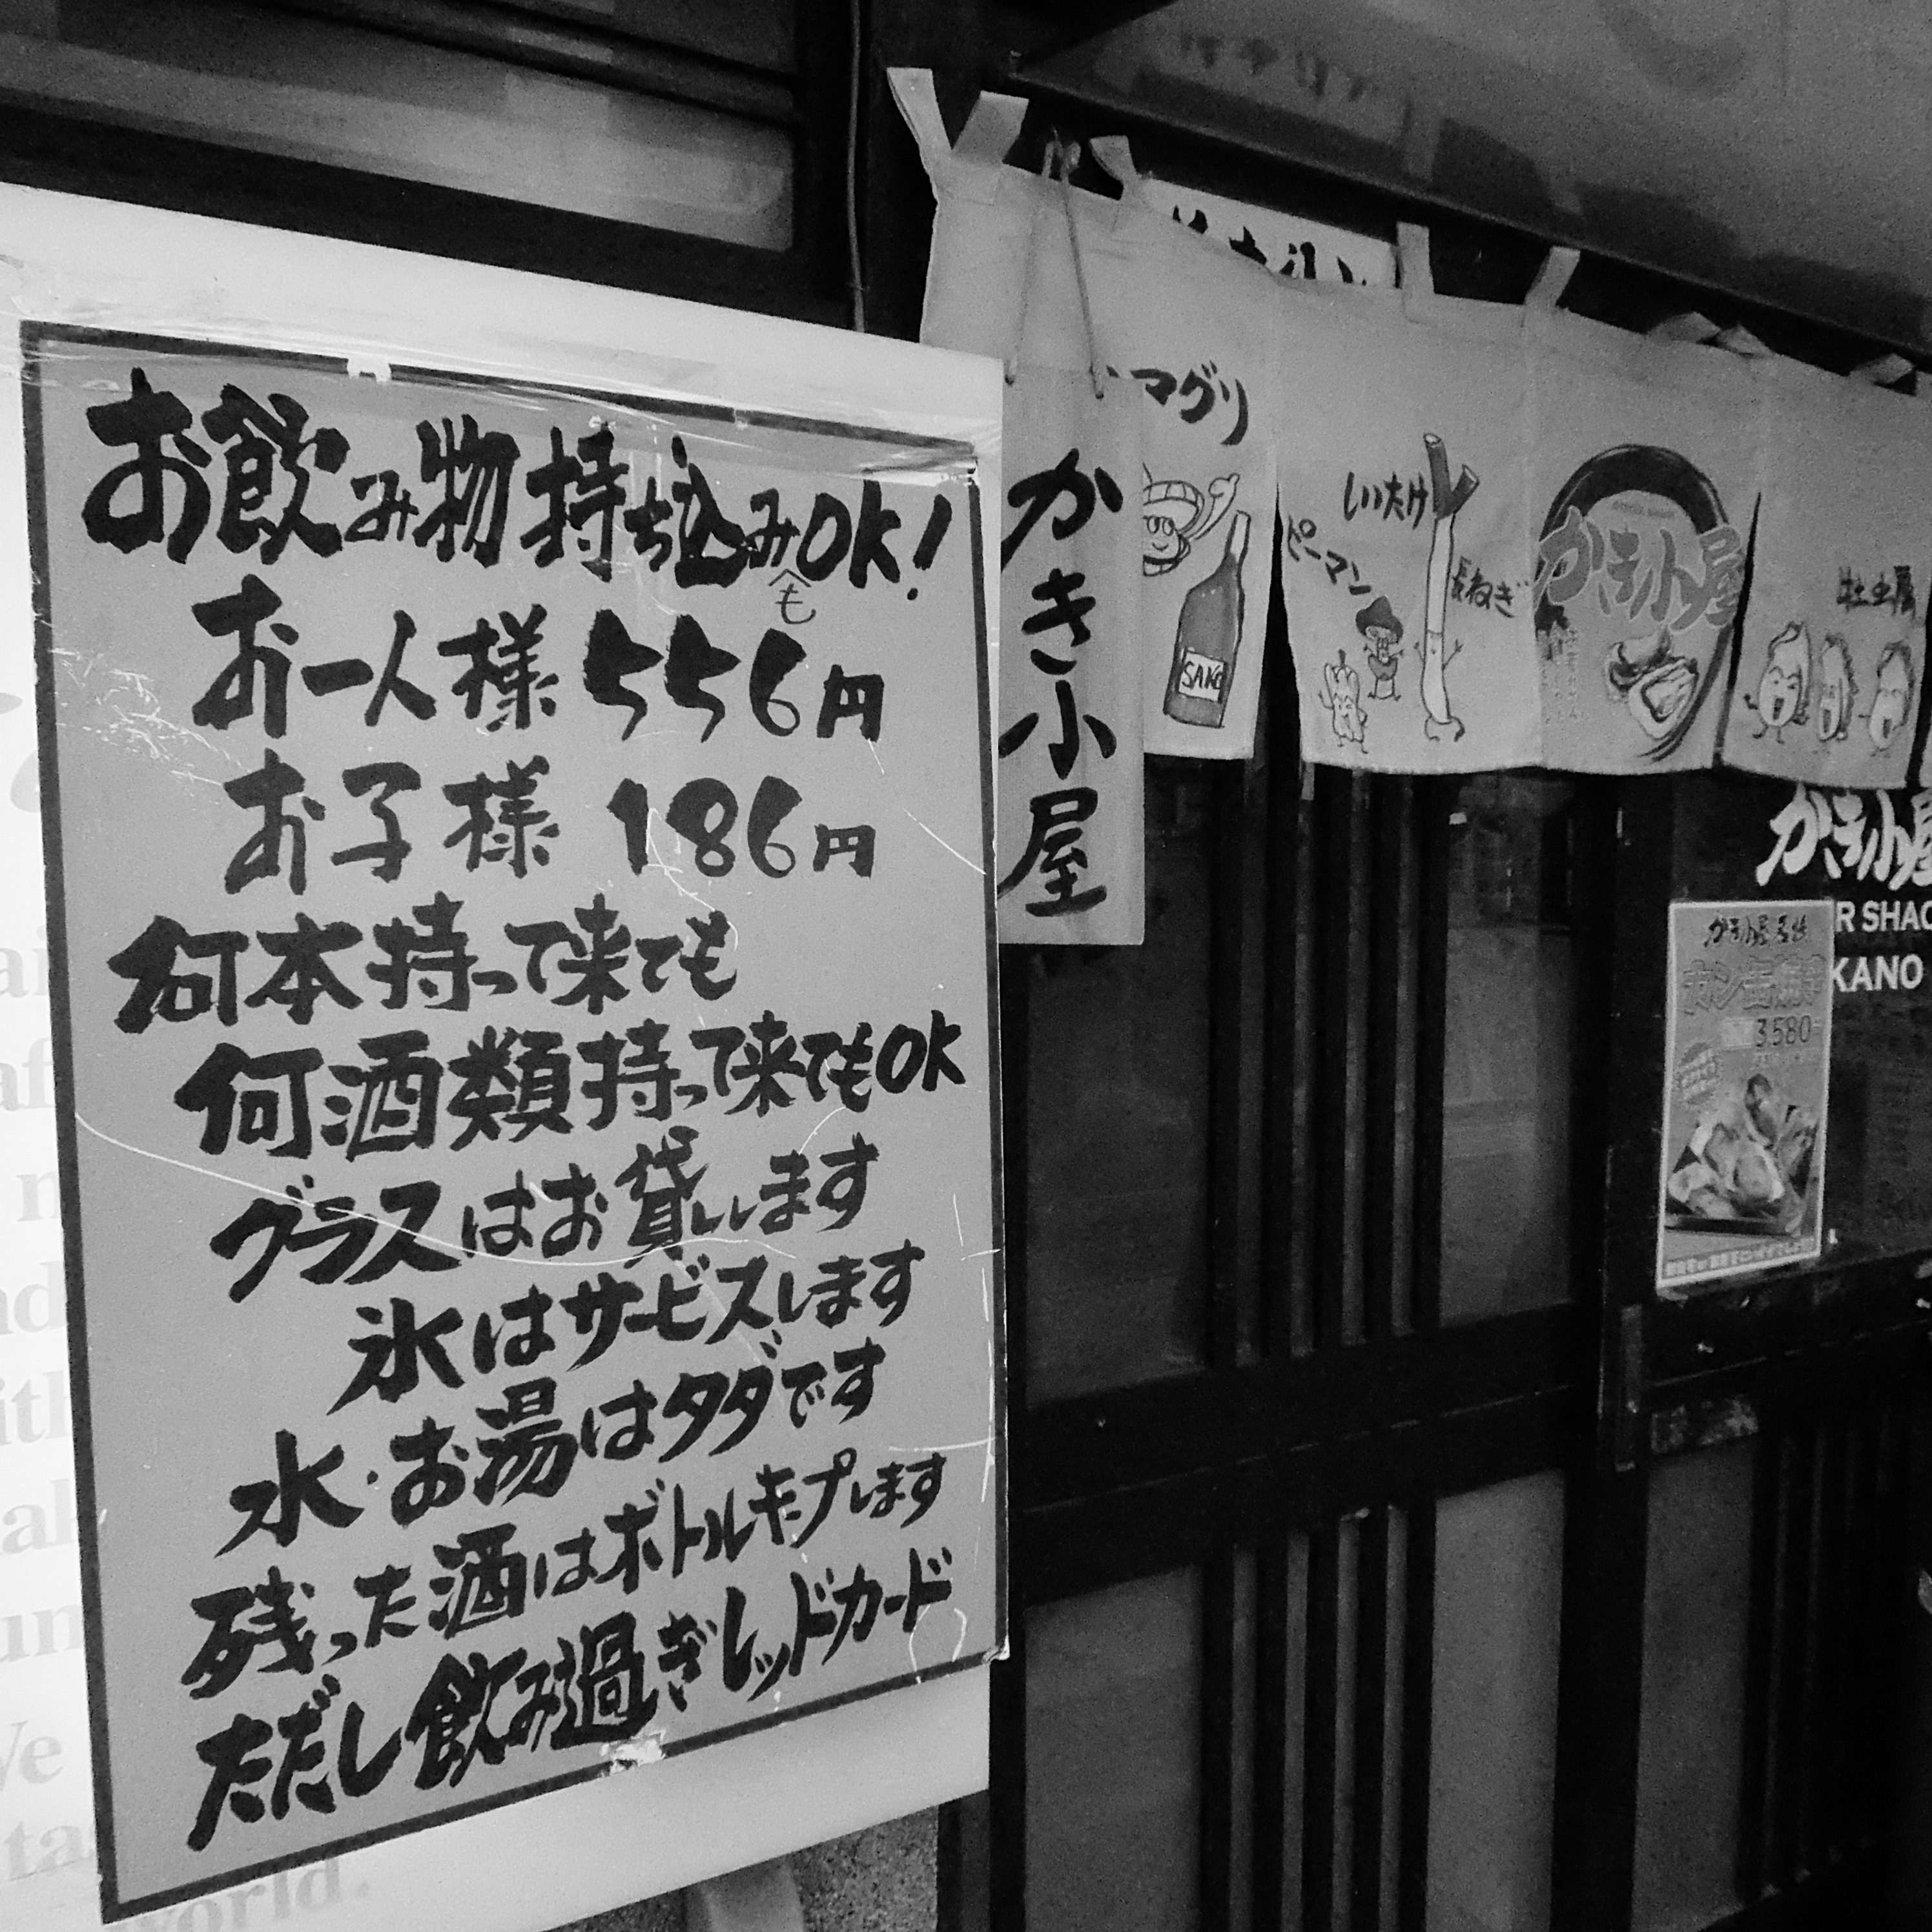 お飲み物持ち込みOK!
も
お一人様 556円
お子様 186円
何本持って来ても
何酒類持って来てもOK
グラスはお貸しします
氷はサービスします
水・お湯はタダです
残った酒はボトルキープします
ただし飲み過ぎレッドカード
かき小屋
マグリ
SAKE
しいたけ
ピーマン
長ねぎ
かき小屋
牡蠣
かき小屋
R SHAC
KANO
かき小屋
カンカン焼き
3580
world.